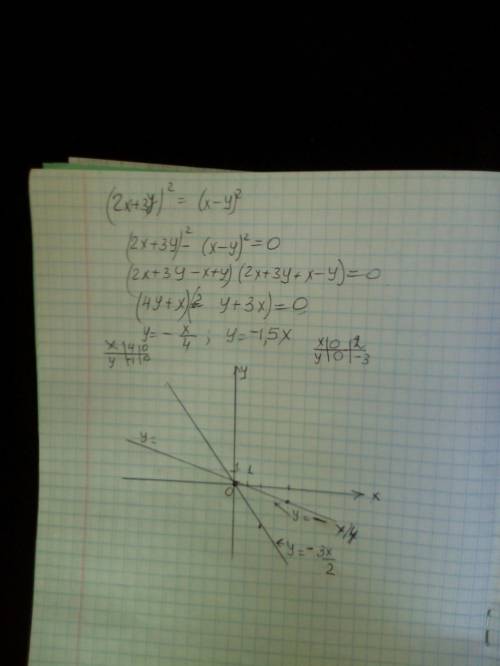 (2x+3y)² = (x-y)²
(2x+3y)² - (x-y)² = 0
(2x+3y-x+y)(2x+3y+x-y)=0
(4y+x)(2y+3x)=0
y = -x/4 ; y = -1,5x
x | 4 | 0
y | -1 | 0
x | 0 | 2
y | 0 | -3
y
y=
1 1
0
x
y = - x/4
y = -3x/2